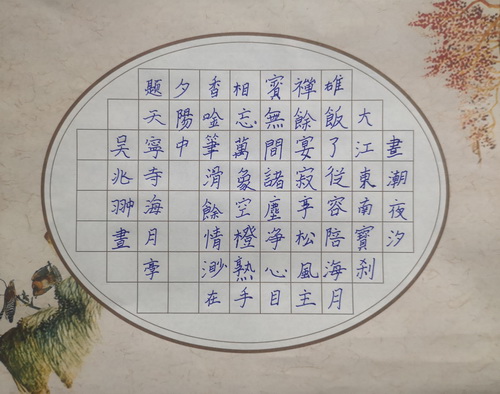 晝潮夜汐
大江東南寶刹
雄飯了從容陪海月
禪餘宴寂享松風主
賓無間諸塵净心目
相忘萬象空橙熟手
香唫筆滑餘情渺在
夕陽中
題天寧寺海月亭
吴兆翀晝